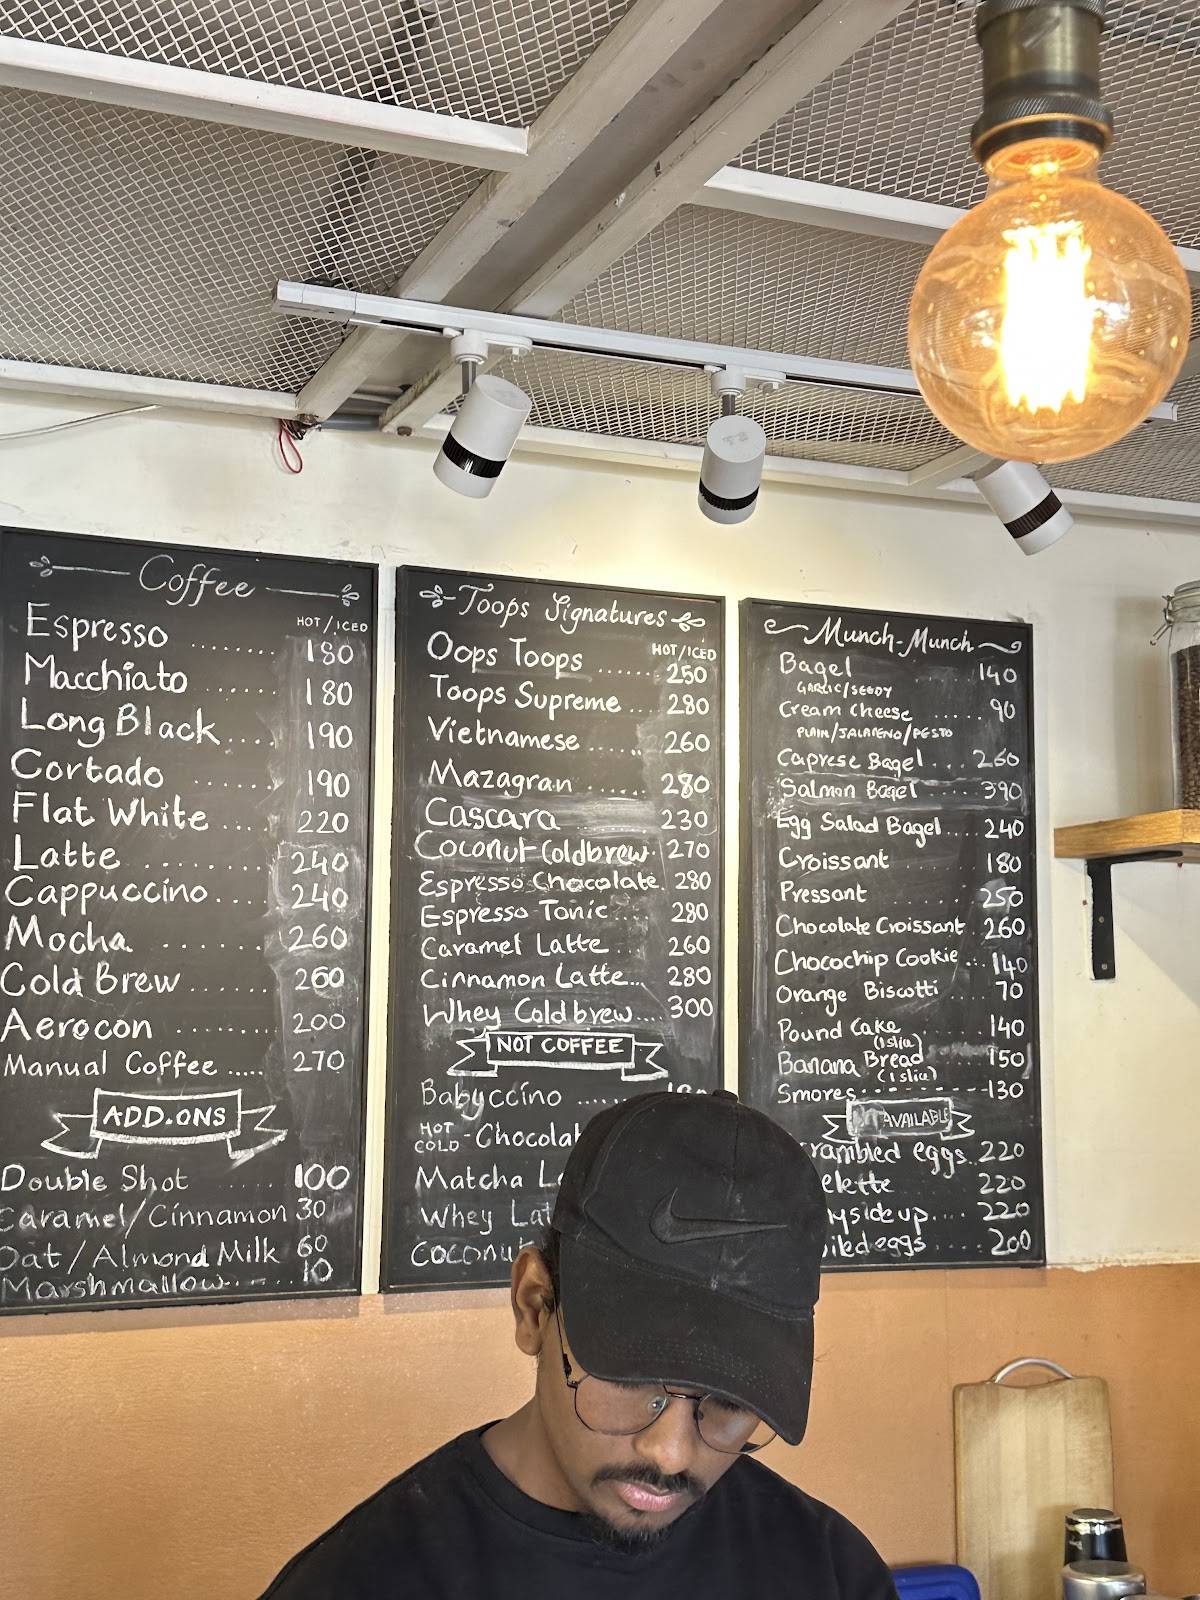 Coffee
HOT/ICED
Espresso ........ 180
Macchiato ...... 180
Long Black .... 190
Cortado ...... 190
Flat White .... 220
Latte ....... 240
Cappuccino.... 240
Mocha ....... 260
Cold Brew ...... 260
Aerocon ........ 200
Manual Coffee ..... 270
ADD.ONS
Double Shot ..... 100
Caramel/Cinnamon 30
Oat/Almond Milk 60
Marshmallow..... 10
Toops Signatures
HOT/ICED
Oops Toops ...... 250
Toops Supreme... 280
Vietnamese ...... 260
Mazagran ...... 280
Cascara 230
Coconut Coldbrew. 270
Espresso Chocolate. 280
Espresso Tonic ... 280
Caramel Latte ... 260
Cinnamon Latte... 280
Whey Coldbrew.... 300
NOT COFFEE
Babyccino .....
HOT
COLD - Chocolat
Matcha
Whey Lat
Coconut
Munch-Munch
Bagel 140
GARLIC/SEEDY
Cream cheese ...... 90
PLAIN/JALAPENO/PESTO
Caprese Bagel... 260
Salmon Bagel .... 390
Egg Salad Bagel.... 240
Croissant 180
Pressant ..... 250
Chocolate Croissant. 260
Chocochip Cookie... 140
Orange Biscotti .... 70
Pound Cake ..... 140
(1 slice)
Banana Bread ..... 150
(1 slice)
Smores--------130
AVAILABLE
rambled eggs.. 220
elette .... 220
nyside up.... 220
iled eggs ..... 200